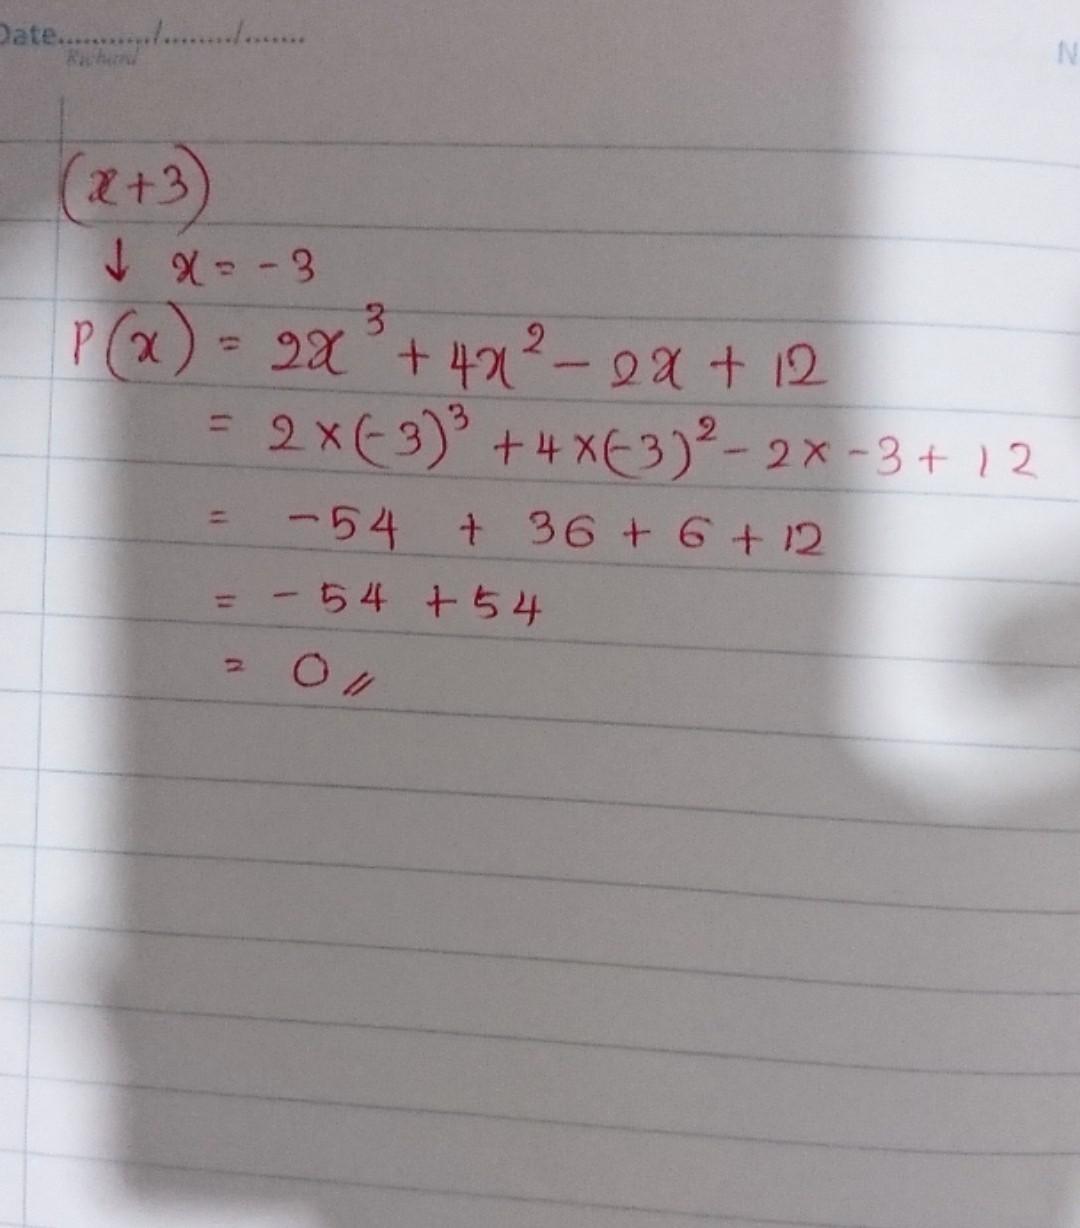 Date.........../........./.......
Richard
N
(x+3)
↓ x = -3
P(x) = 2x³ + 4x² - 2x + 12
= 2×(-3)³ + 4×(-3)² - 2× -3 + 12
= -54 + 36 + 6 + 12
= -54 + 54
= 0 //